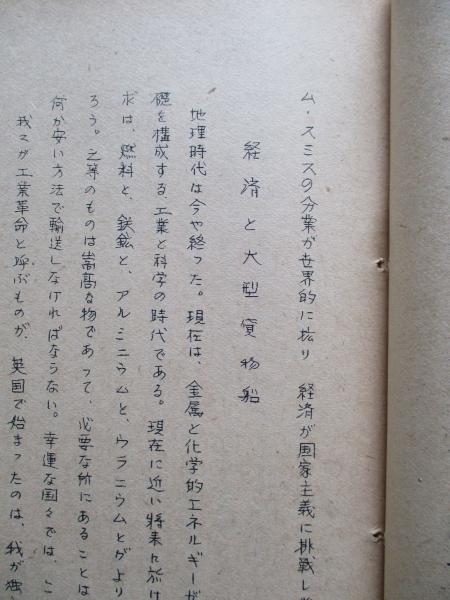 ム・スミスの分業が世界的に拡り　経済が国家主義に挑戦し
経済と大型貨物船
地理時代は今や終つた。現在は、金属と化学的エネルギーが
礎を構成する、工業と科学の時代である。現在に近い将来に於け
求は、燃料と、鉄鉱と、アルミニウムと、ウラニウムとがより
ろう。之等のものは嵩高な物であつて、必要な所にあることは
何か安い方法で輸送しなければならない。幸運な国々では、こ
我々が工業革命と呼ぶものが、英国で始まつたのは、我が